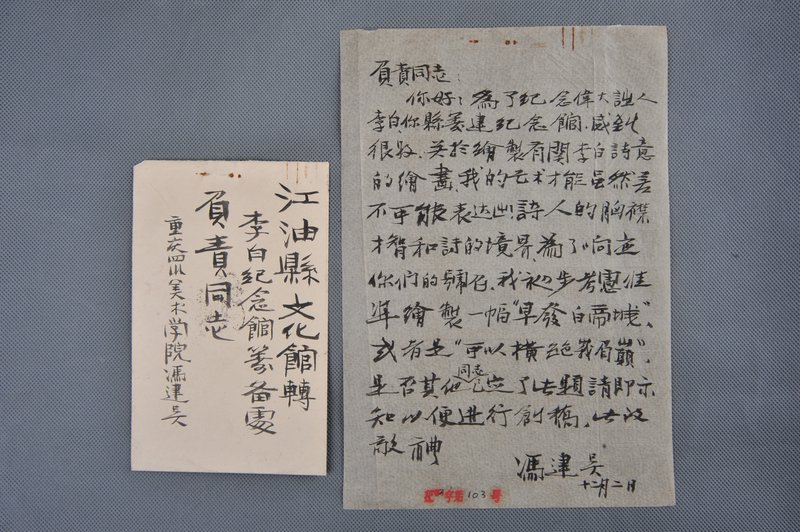 江油縣文化館轉
李白纪念館筹备處
負責同志
重庆四川美术学院馮建吴
負責同志:
你好!為了纪念偉大詩人
李白,你縣筹建纪念館,感到
很好.关於繪製有関李白詩意
的繪畫,我的艺术才能虽然差
不可能表达出詩人的胸襟
才智和詩的境界,為了响应
你們的號召,我初步考慮准
準繪製一幅"早發白帝城",
或者是"可以横絶峨眉巔",
是否其他同志定了此題請即示
知以便進行創稿,此致
敬神
馮建吴
十二月二日
103号